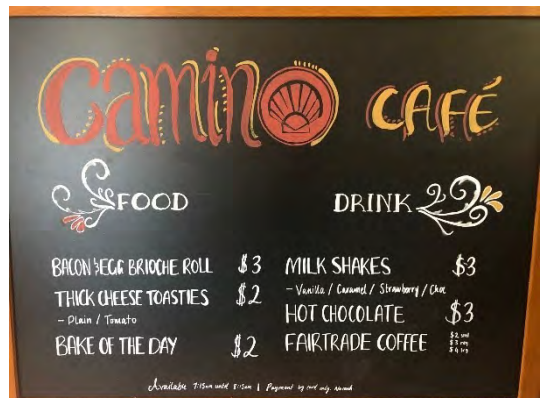 Camino CAFÉ
FOOD
BACON & EGG BRIOCHE ROLL $3
THICK CHEESE TOASTIES $2
– Plain / Tomato
BAKE OF THE DAY $2
DRINK
MILK SHAKES $3
– Vanilla / Caramel / Strawberry / Choc
HOT CHOCOLATE $3
FAIRTRADE COFFEE
$2 sml
$3 reg
$4 lrg
Available 7:15am until 8:15am | Payment by card only.